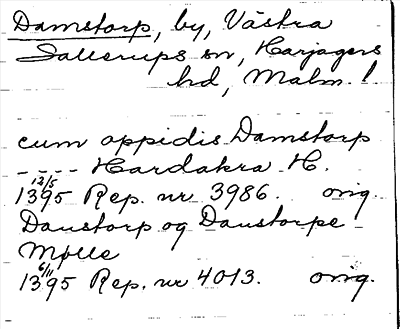 Damstorp, by, Västra
Sallerups sn, Harjagers
hd, Malm. l.
cum oppidis Damstorp
---- Hardakra H.
12/5
1395 Rep. nr 3986. orig.
Daustorp og Daustorpe
Mølle
6/11
1395 Rep. nr 4013. orig.